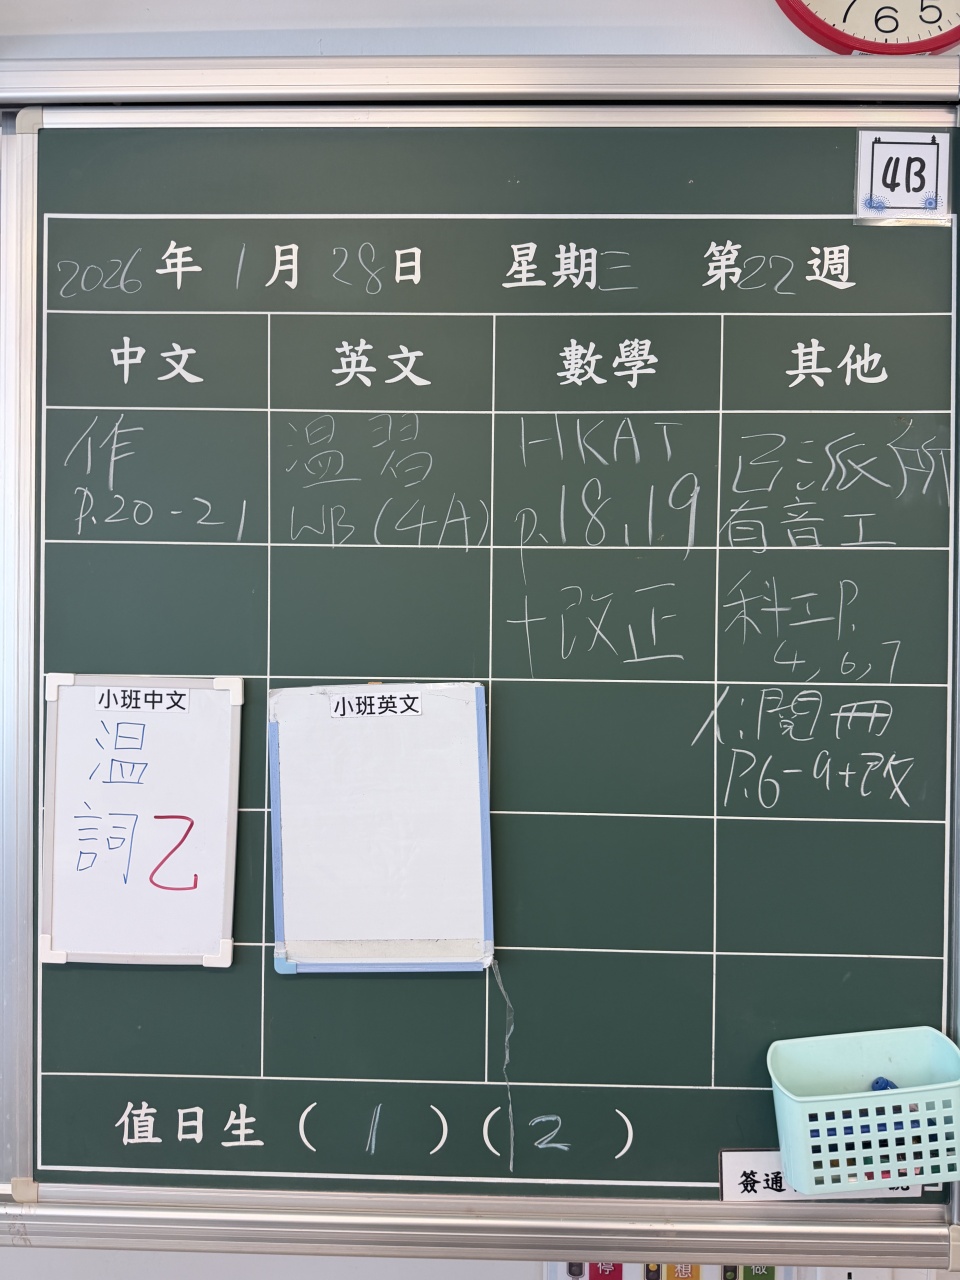 7 6 5
4B
2026年1月28日 星期三 第22週
中文 英文 數學 其他
作
P.20-21
溫習
WB(4A)
HKAT
p.18,19
+改正
已派所
有音工
科工P.
4,6,7
人:閱冊
P.6-9+改
小班中文
溫
詞乙
小班英文
值日生(1)(2)
簽通
停 想 做